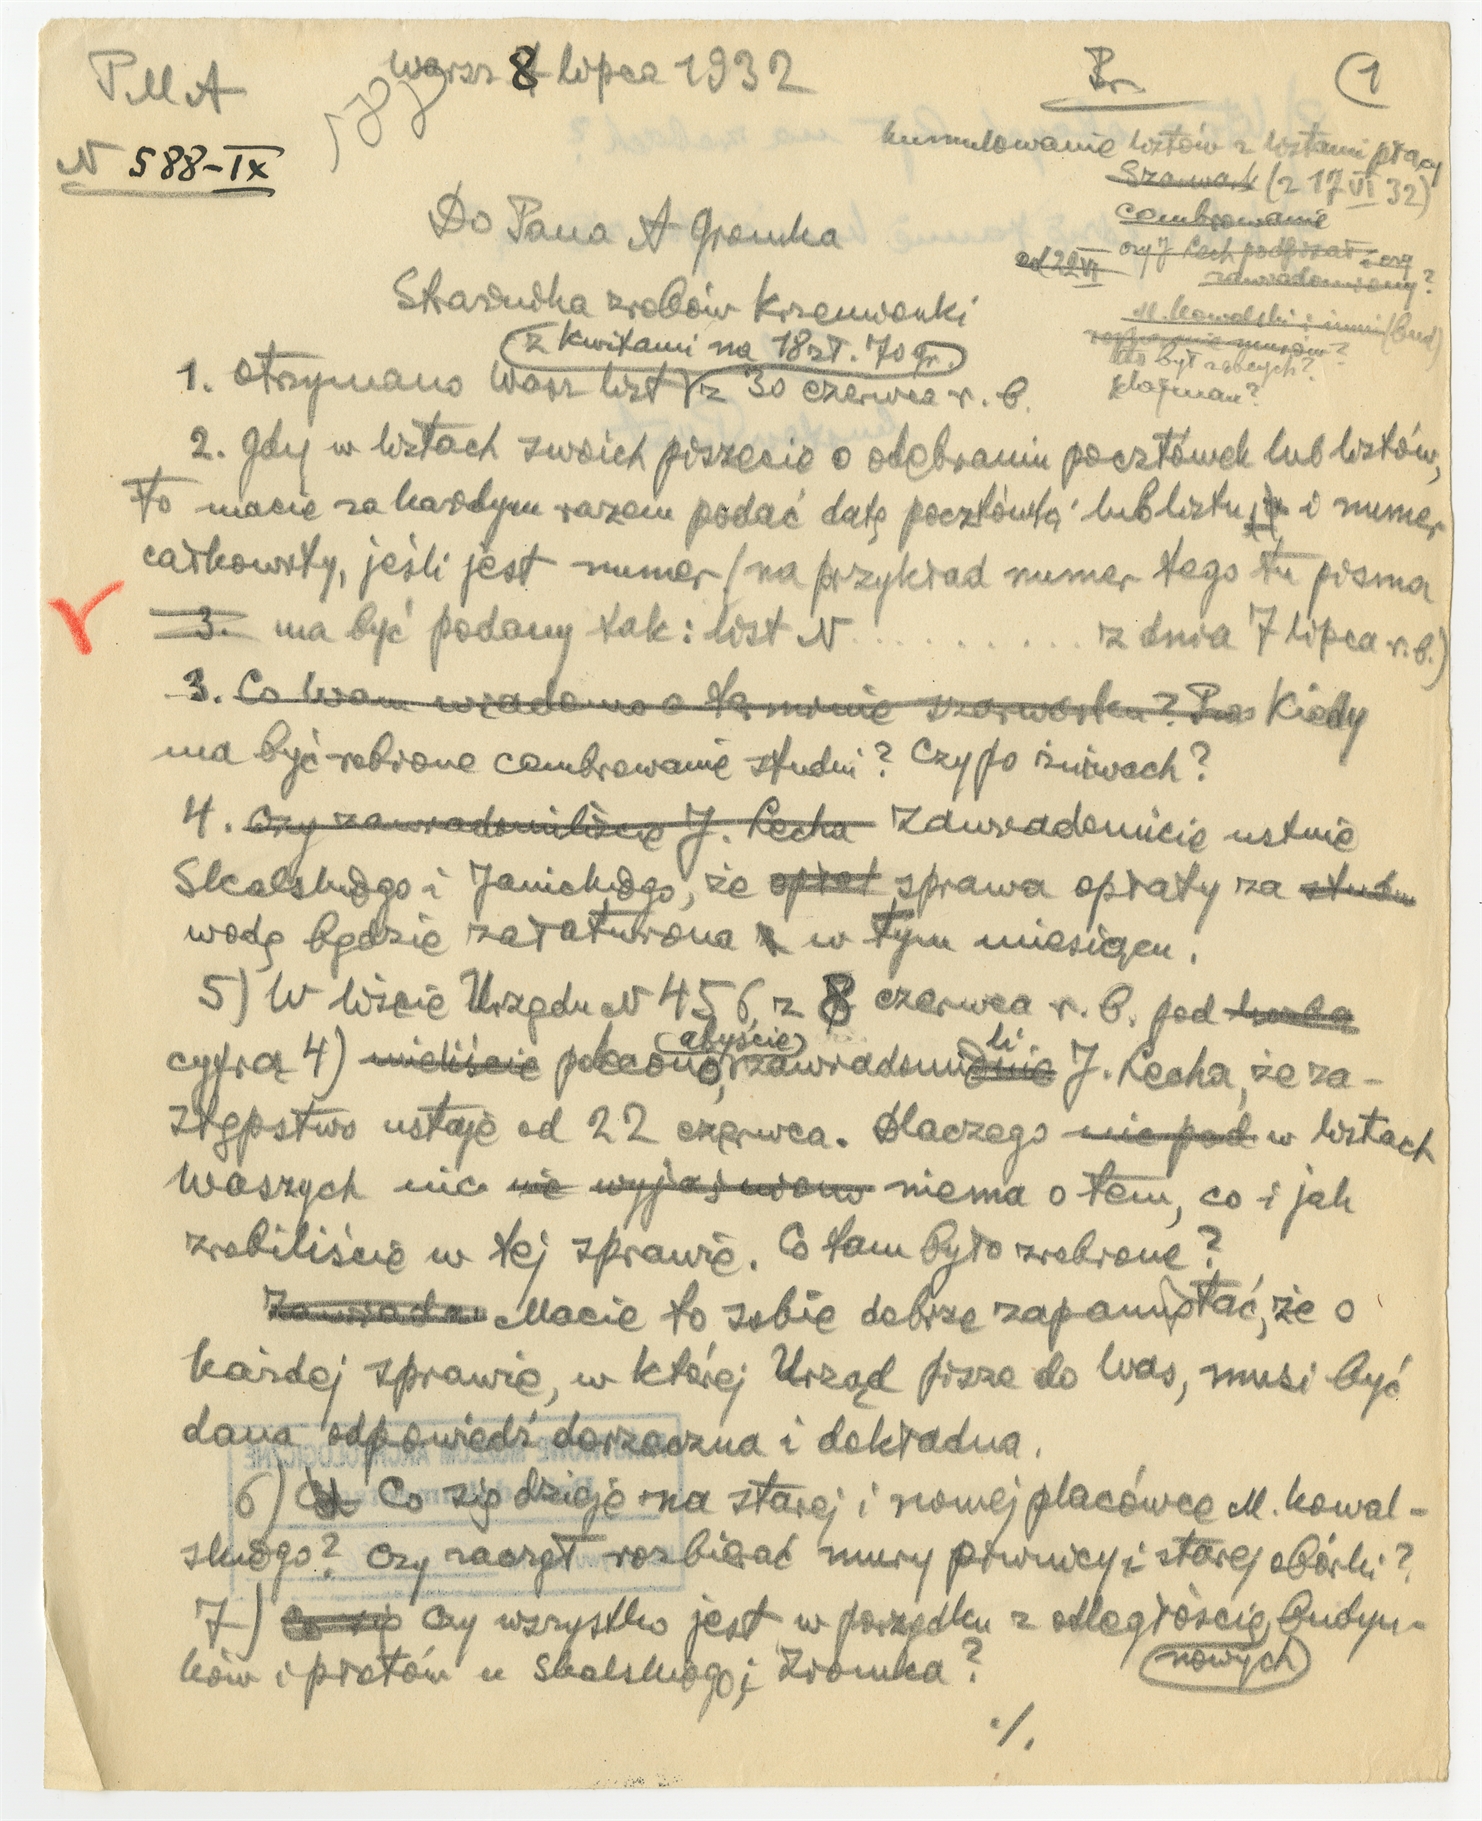 PMA
Warsz 8 lipca 1932
Br.
1
588
N 588-IX
kumulowanie listów z listami płacy
Szarwark (z 17 VI 32)
cembrowanie
czy J. Lech podpisał i czy
od 22 VI
zawiadomiony?
M. Kowalski i inni (bud)
kto był robuch?
Do Pana A Gromka
Strażnika źrobów Krzemionki
z kwitami na 18 zł. 70 gr.
1. Otrzymano Wasz list z 30 czerwca r. b.
2. Gdy w listach swoich piszecie o odebraniu pocztówek lub listów,
to macie za każdym razem podać datę pocztówki lub listu, i numer
całkowity, jeśli jest numer (na przykład numer tego tu pisma
3. ma być podany tak: list N . . . . . . . . . z dnia 7 lipca r. b.)
3. Co Wam wiadomo o terminie szarwarku? Kiedy
ma być robione cembrowanie studni? Czy po żniwach?
4. Czy zawiadomiliście J. Lecha Zawiadomicie ustnie
Skalskiego i Janickiego, że opłat sprawa opłaty za studn
wodę będzie załatwiona w tym miesiącu.
5) W liście Urzędu N 456 z 8 czerwca r. b. pod liczbą
abyście li
cyfrą 4) mieliście polecono, zawiadomienie J. Lecha, że za-
stępstwo ustaje od 22 czerwca. Dlaczego nie pod w listach
Waszych nic nie wyjaśniono niema o tem, co i jak
zrobiliście w tej sprawie. Co tam było zrobione?
Zawiada Macie to sobie dobrze zapamiętać, że o
każdej sprawie, w której Urząd pisze do Was, musi być
dana odpowiedź dorzeczna i dokładna.
6) Co się dzieje na starej i nowej placówce M. Kowal-
skiego? Czy zaczął rozbierać mury piwnicy i starej obórki?
7) Co się Czy wszystko jest w porządku z odległością budyn-
nowych
ków i płotów u Skalskiego i Ziomka?
./.